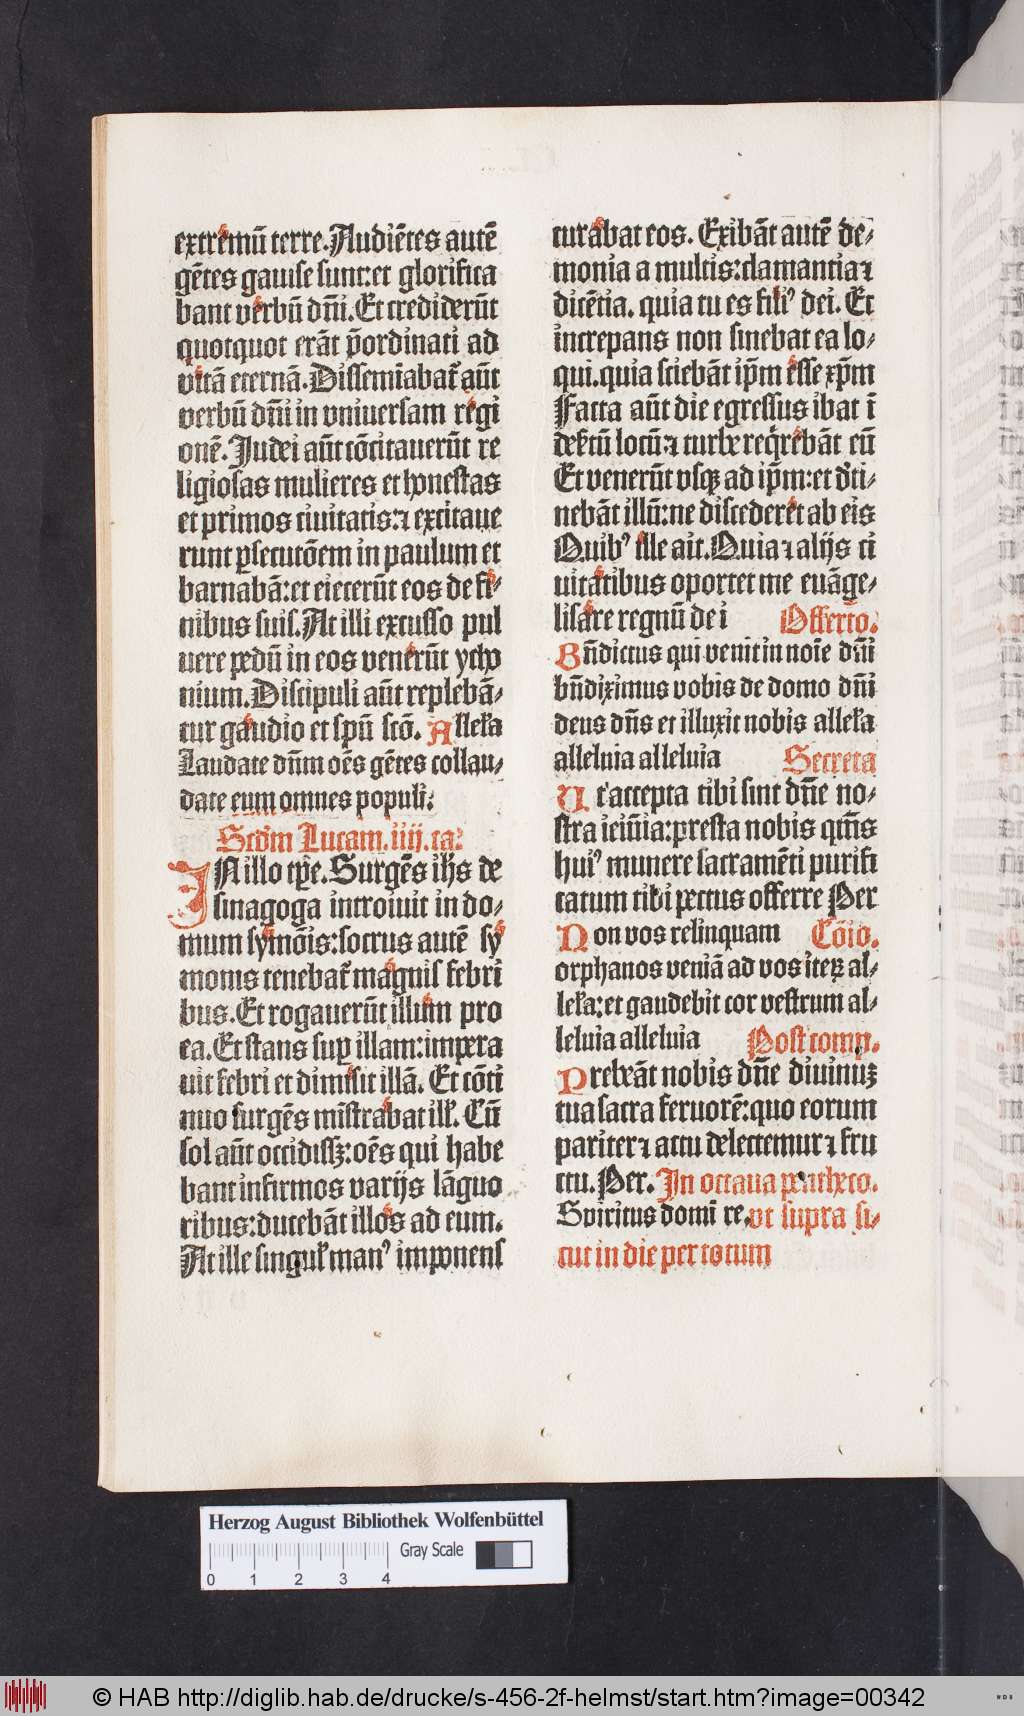 extremū terre. Audiētes autē
gētes gauise sunt: et glorifica
bant verbū dn̄i. Et crediderūt
quotquot erāt p̄ordinati ad
vitā eternā. Dissemīabat᷑ aūt
verbū dn̄i in vniuersam regi
onē. Judei aūt cōcitauerūt re
ligiosas mulieres et honestas
et primos ciuitatis: ⁊ excitaue
runt ꝑsecutōem in paulum et
barnabā: et eiecerūt eos de fi⸗
nibus suis. At illi excusso pul
uere pedū in eos venerūt ycho
nium. Discipuli aūt replebā⸗
tur gaudio et spū scō. Alleła
Laudate dn̄m oēs gētes collau⸗
date eum omnes populi.
Scd̄m Lucam. iiij. ca.
IN illo tp̄e. Surgēs ihs de
sinagoga introiuit in do⸗
mum symōis: socrus autē sy
monis tenebat᷑ magnis febri
bus. Et rogauerūt illum pro
ea. Et stans suꝑ illam: impera
uit febri et dimisit illā. Et cōti
nuo surgēs mīstrabat ill. Cū
sol aūt occidissꝫ: oēs qui habe
bant infirmos varijs lāguo
ribus: ducebāt illos ad eum.
At ille singuł manꝰ imponens
curabat eos. Exibāt autē de⸗
monia a multis: clamantia ⁊
dicētia. quia tu es filiꝰ dei. Et
increpans non sinebat ea lo⸗
qui. quia sciebāt ip̄m esse xp̄m
Facta aūt die egressus ibat ī
desertū locū: ⁊ turbe reqrebāt eū
Et venerūt vsqꝫ ad ip̄m: et dti⸗
nebāt illū: ne discederet ab eis
Quibꝰ ille ait. Quia ⁊ alijs ci
uitatibus oportet me euāge⸗
lisare regnū dei Offerto.
Bn̄dictus qui venit in noīe dn̄i
bn̄diximus vobis de domo dn̄i
deus dn̄s et illuxit nobis alleła
alleluia alleluia Secreta
Ut accepta tibi sint dn̄e no⸗
stra ieiūia: presta nobis qm̄s
huiꝰ munere sacramēti purifi
catum tibi pectus offerre Per
Non vos relinquam Cōio.
orphanos veniā ad vos iteꝝ al⸗
leła: et gaudebit cor vestrum al⸗
leluia alleluia Post comp.
Prebeāt nobis dn̄e diuinuꝫ
tua sacra feruorē: quo eorum
pariter ⁊ actu delectemur ⁊ fru
ctu. Per. In octaua pentheco.
Spiritus domī re. vt supra si⸗
cut in die per totum
Herzog August Bibliothek Wolfenbüttel
Gray Scale
0 1 2 3 4
© HAB http://diglib.hab.de/drucke/s-456-2f-helmst/start.htm?image=00342